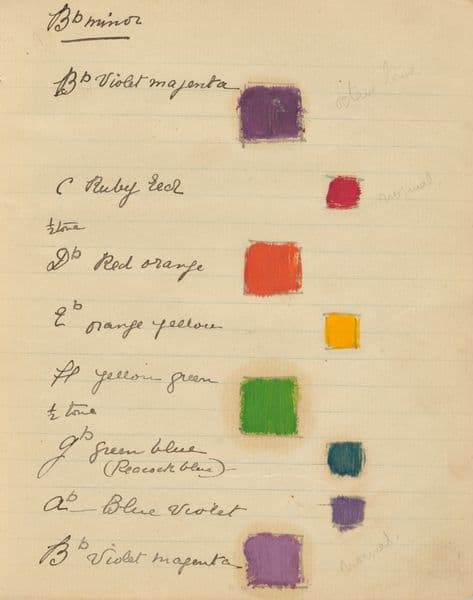 B♭ minor
B♭ Violet magenta
octave low
C Ruby Red
normal
½ tone
D♭ Red orange
E♭ orange yellow
F yellow green
½ tone
g♭ green blue
(Peacock blue)
a♭ Blue Violet
B♭ Violet magenta
normal.